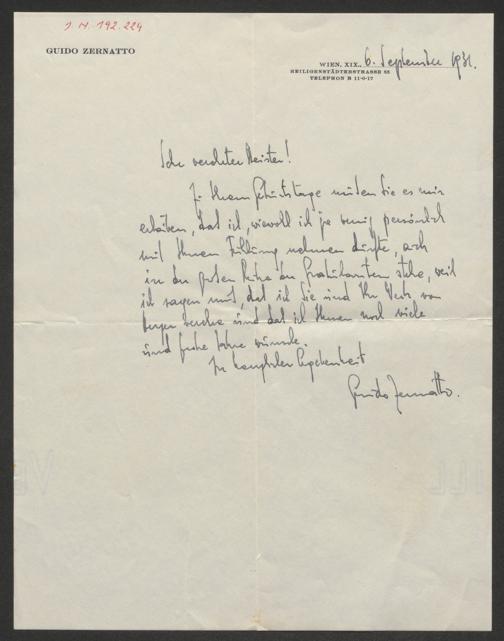 J. N. 192.224
GUIDO ZERNATTO
WIEN, XIX., 6. September 1931.
HEILIGENSTÄDTERSTRASSE
TELEPHON B 11-0-17
Sehr verehrter Meister!
Zu Ihrem Geburtstage müssen Sie es mir
erlauben, daß ich, wiewohl ich je wenig persönlich
mit Ihnen Fühlung nehmen durfte, auch
in der großen Reihe der Gratulanten stehe, weil
ich sagen muß, daß ich Sie und Ihr Werk von
Herzen verehre und daß ich Ihnen noch viele
und frohe Jahre wünsche.
In Ergebenheit
Guido Zernatto.